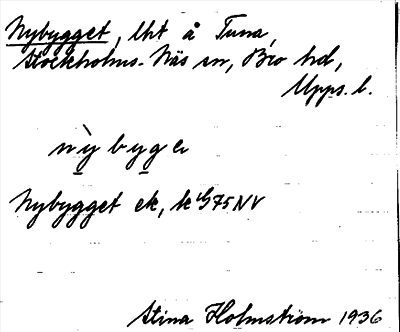 Nybygget, lht å Tuna,
Stockholms-Näs sn, Bro hd,
Upps. l.
nỳbyge
Nybygget ek, k G75NV
Stina Holmström 1936